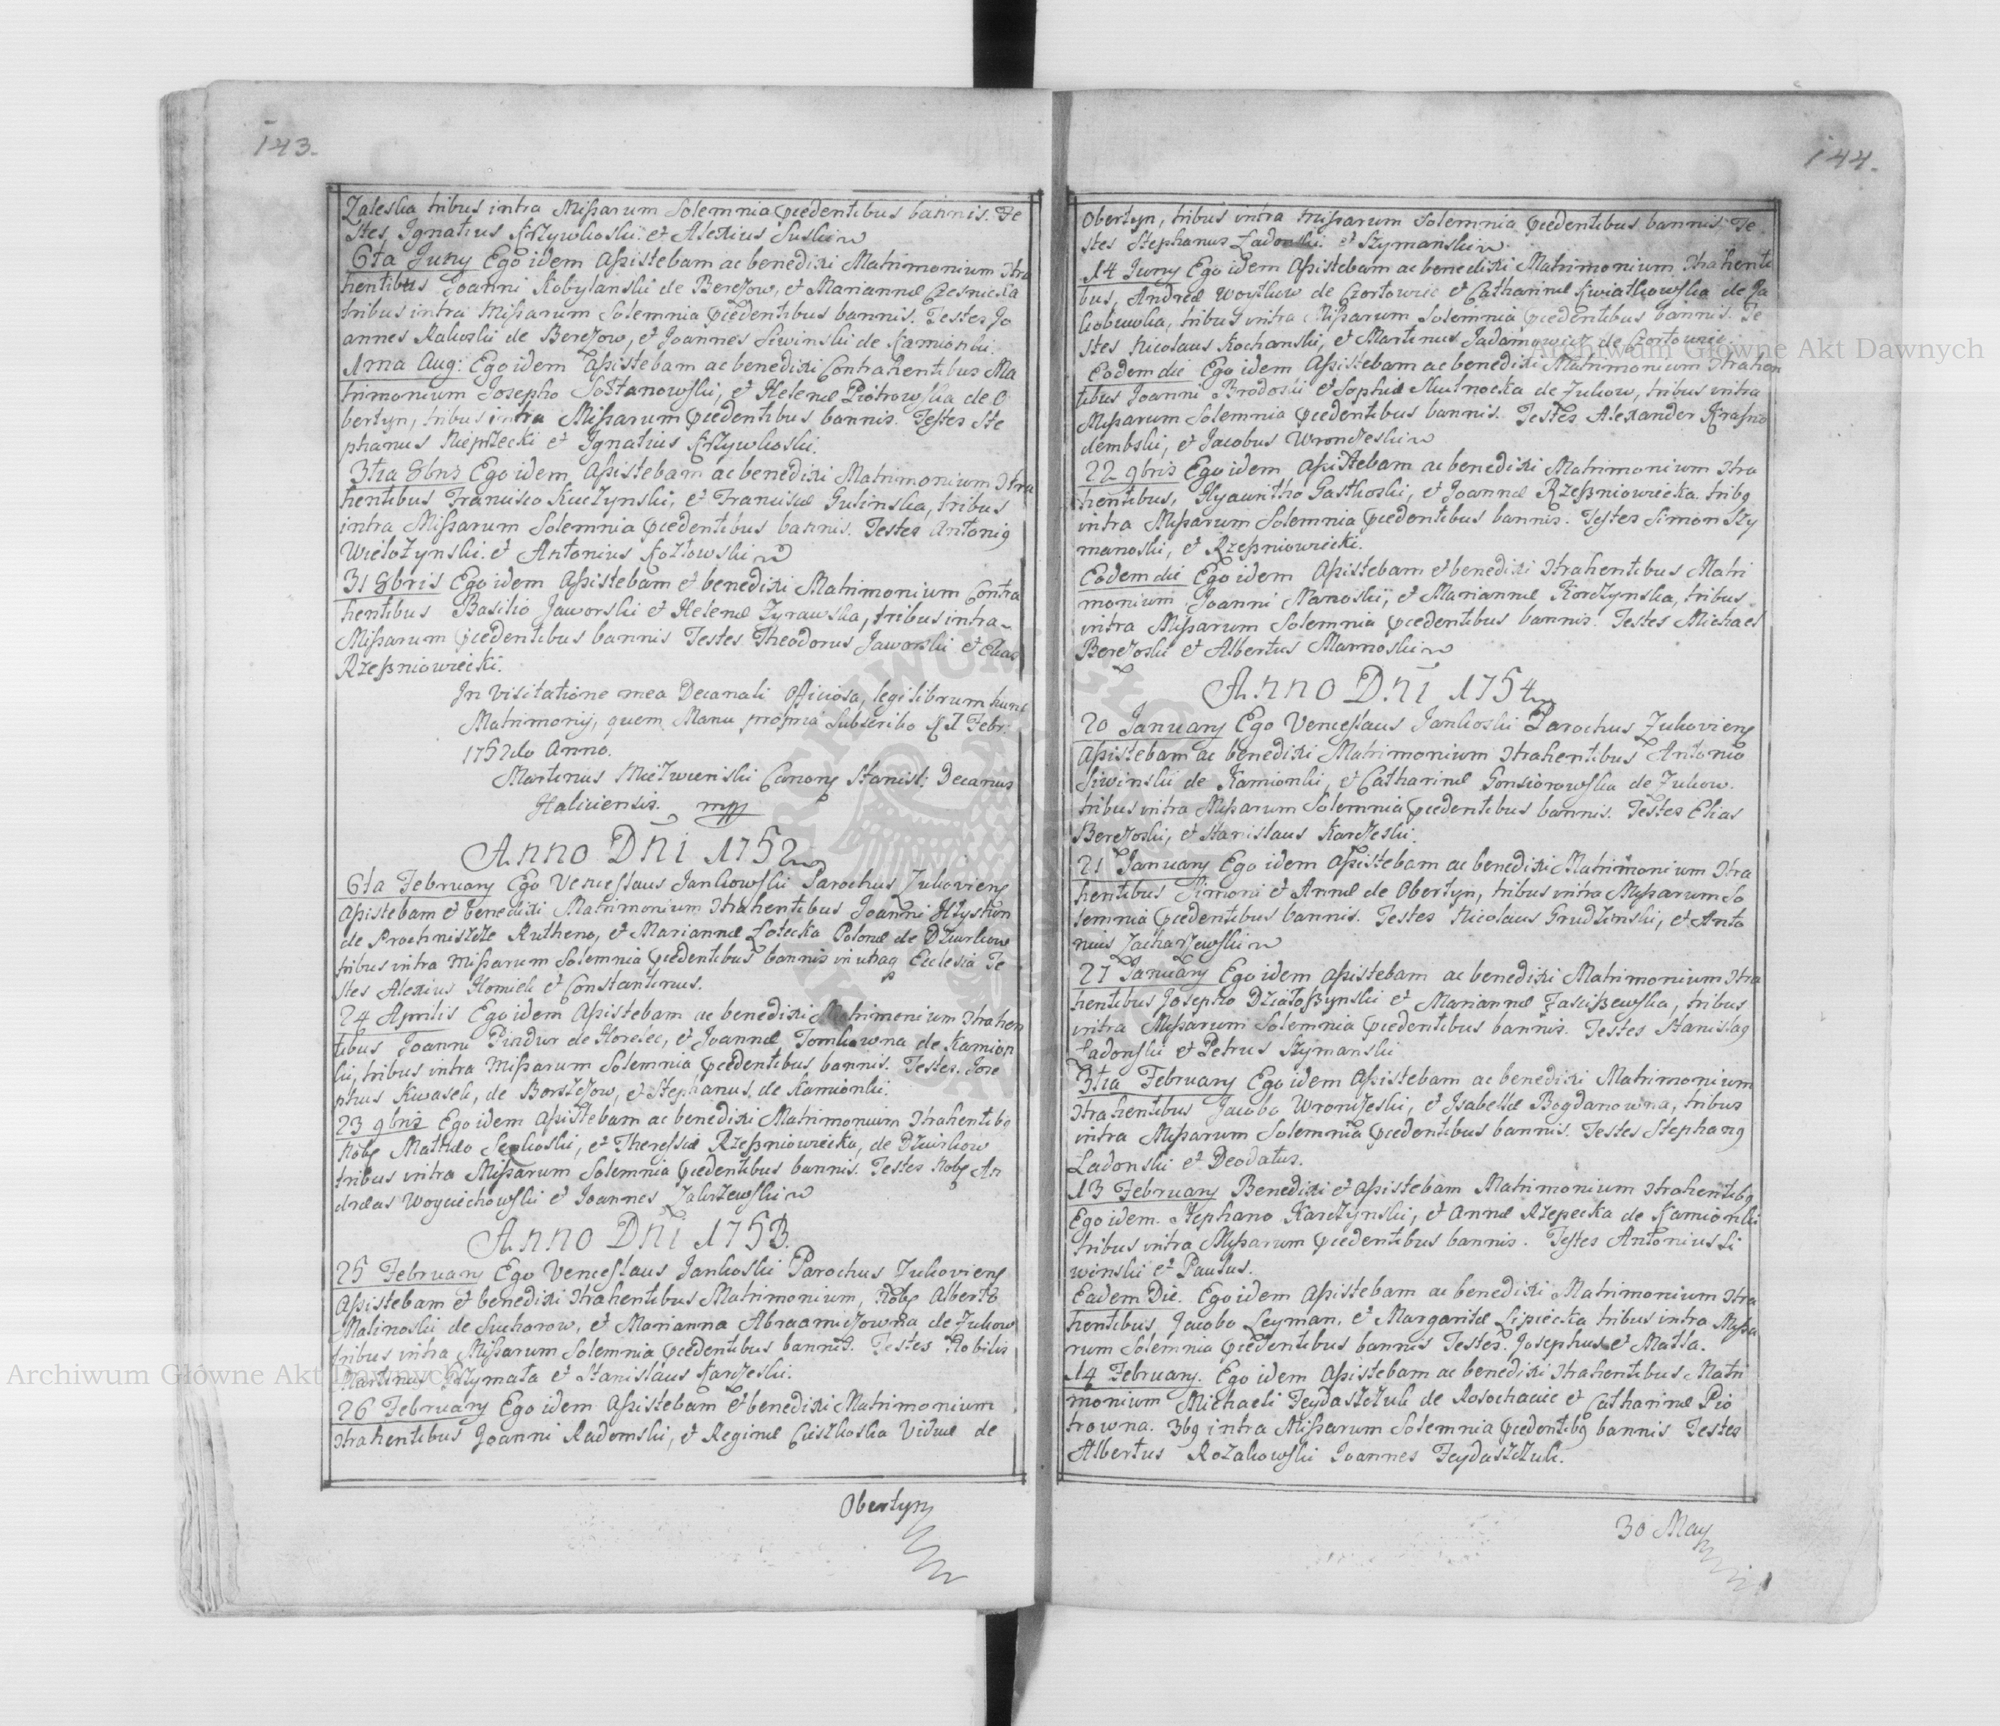 143.
Zaleska tribus intra Missarum Solemnia pcedentibus bannis. Te
stes, Ignatius Krzywkoski et Alexius Suski
6ta Juny Ego idem Assistebam ac benedixi Matrimonium Ctra
hentibus Joanni Kobylanski de Berezow, et Mariannæ Czesnicka
tribus intra Missarum Solemnia pcedentibus bannis. Testes Jo
annes Rakoski de Berezow, et Joannes Siwinski de Kamionki.
1ma Aug: Ego idem Assistebam ac benedixi Contrahentibus Ma
trimonium Josepho Sołtanowski, et Helenæ Piotrowska de O
bertyn, tribus intra Missarum pcedentibus bannis. Testes Ste
phanus et Ignatius Krzywkoski.
3tia 8bris Ego idem Assistebam ac benedixi Matrimonium Ctra
hentibus Francisco Kuczynski, et Franciscæ Gulinska, tribus
intra Missarum Solemnia pcedentibus bannis. Testes Antoni9
Wielozynski et Antonius Kozłowski
31 8bris Ego idem Assistebam et benedixi Matrimonium Contra
hentibus Basilio Jaworski et Helenæ Zyrawska, tribus intra
Missarum pcedentibus bannis Testes Theodorus Jaworski et Elias
Rzeßniowiecki.
In visitatione mea Decanali Officiosa, legi librum hunc
Matrimoniy, quem Manu propria Subscribo Febr:
1752do Anno.
Martinus Canony Stanisl: Decanus
Haliciensis. mpp
Anno Dni 1752
6ta February Ego Venceslaus Jankowski Parochus Zukoviens
Assistebam et benedixi Matrimonium Ctrahentibus Joanni
de Prochniszcze Rutheno, et Mariannæ Łotecka Polonæ de Dzurkow
tribus intra Missarum Solemnia pcedentibus bannis in utraq Ecclesia Te
stes Alexius Homick et Constantinus.
24 Aprilis Ego idem Assistebam ac benedixi Matrimonium Ctrahen
tibus Joanni Pindur de Horelec, et Joannæ Tomkowna de Kamion
ki, tribus intra Missarum Solemnia pcedentibus bannis. Testes Jose
phus Kwasek, de Borszczow, et Stephanus de Kamionki.
23 9bris Ego idem Assistebam ac benedixi Matrimonium Ctrahentib9
Nobs et Theressiæ Rzeßniowiecka, de Dzurkow
tribus intra Missarum Solemnia pcedentibus bannis. Testes Nobs An
dreas Woyciechowski et Joannes Zakrzewski
Anno Dni 1753.
25 February Ego Venceslaus Jankoski Parochus Zukoviens
Assistebam et benedixi Ctrahentibus Matrimonium, Nobs Alberto
Malinoski de Suchorow, et Marianna Abraamczowna de Zukow
tribus intra Missarum Solemnia pcedentibus bannis. Testes Nobilis
Martinus Przymata et Stanislaus Karczeski.
26 February Ego idem Assistebam et benedixi Matrimonium
Ctrahentibus Joanni Radomski, et Reginæ Cieszkoska Viduæ de
Obertyn
144.
Obertyn, tribus intra Missarum Solemnia pcedentibus bannis Te
stes Stephanus Ładonski et Szymanski
14 Juny Ego idem Assistebam ac benedixi Matrimonium Ctrahenti
bus, Andreæ Woytkow de Czortowiec et Catharinæ Kwiatkowska de Ja
kobuwka, tribus intra Missarum Solemnia pcedentibus bannis. Te
stes Nicolaus Kochanski, et Martinus Jadamowicz de Czortowiec
Eodem die Ego idem Assistebam ac benedixi Matrimonium Ctrahen
tibus Joanni Brodoski et Sophiæ de Zukow, tribus intra
Missarum Solemnia pcedentibus bannis. Testes Alexander Krasno
dembski, et Jacobus Wronczeski
22 9bris Ego idem Assistebam ac benedixi Matrimonium Ctra
hentibus, Hyacintho Gastkoski, et Joannæ Rzeßniowiecka. trib9
intra Missarum Solemnia pcedentibus bannis. Testes Simon Szy
manoski, et Rzeßniowiecki.
Eodem die Ego idem Assistebam et benedixi Ctrahentibus Matri
monium Joanni Manoski, et Mariannæ Korczynska, tribus
intra Missarum Solemnia pcedentibus bannis. Testes Michael
Berezoski et Albertus Marnoski
Anno Dni 1754
20 January Ego Venceslaus Jankoski Parochus Zukoviens
Assistebam ac benedixi Matrimonium Ctrahentibus Antonio
Siwinski de Kamionki, et Catharinæ Gonsiorowska de Zukow.
tribus intra Missarum Solemnia pcedentibus bannis. Testes Elias
Berezoski, et Stanislaus Karczeski.
21 January Ego idem Assistebam ac benedixi Matrimonium Ctra
hentibus Simoni et Annæ de Obertyn, tribus intra Missarum So
lemnia pcedentibus bannis. Testes Nicolaus Grudzinski, et Anto
nius Zacharzewski
27 January Ego idem Assistebam ac benedixi Matrimonium Ctra
hentibus Josepho Działoßynski et Mariannæ Jascißewska, tribus
intra Missarum Solemnia pcedentibus bannis. Testes Stanisla9
Ładonski et Petrus Szymanski
3tia February Ego idem Assistebam ac benedixi Matrimonium
Ctrahentibus Jacobo Wronczeski, et Isabellæ Bogdanowna, tribus
intra Missarum Solemnia pcedentibus bannis. Testes Stephan9
Ladonski et Deodatus.
13 February Benedixi et Assistebam Matrimonium Ctrahentib9
Ego idem. Stephano Karczynski, et Annæ Rzepecka de Kamionki
tribus intra Missarum pcedentibus bannis. Testes Antonius Si
winski et Paulus.
Eadem Die. Ego idem Assistebam ac benedixi Matrimonium Ctra
hentibus, Jacobo Leyman, et Margaritæ Lipiecka tribus intra Missa
rum Solemnia pcedentibus bannis Testes. Josephus et Matla.
14 February. Ego idem Assistebam ac benedixi Ctrahentibus Matri
monium Michaeli Feydaszczuk de Rosochacic et Catharinæ Pio
trowna. 3b9 intra Missarum Solemnia pcedentib9 bannis Testes
Albertus Rozakowski Joannes Feydaszczuk.
30 May
Archiwum Główne Akt Dawnych
Archiwum Główne Akt Dawnych